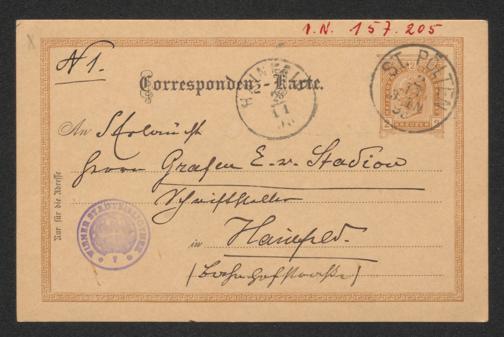 I.N. 157.205
N 1.
Correspondenz-Karte.
HAINFELD
11
ST. PÖLTEN
2
An
Herrn Grafen E. v. Stadion
Schriftsteller
in Hainfeld.
(Bahnhofstraße)
Nur für die Adresse
WIENER STADTBIBLIOTHEK